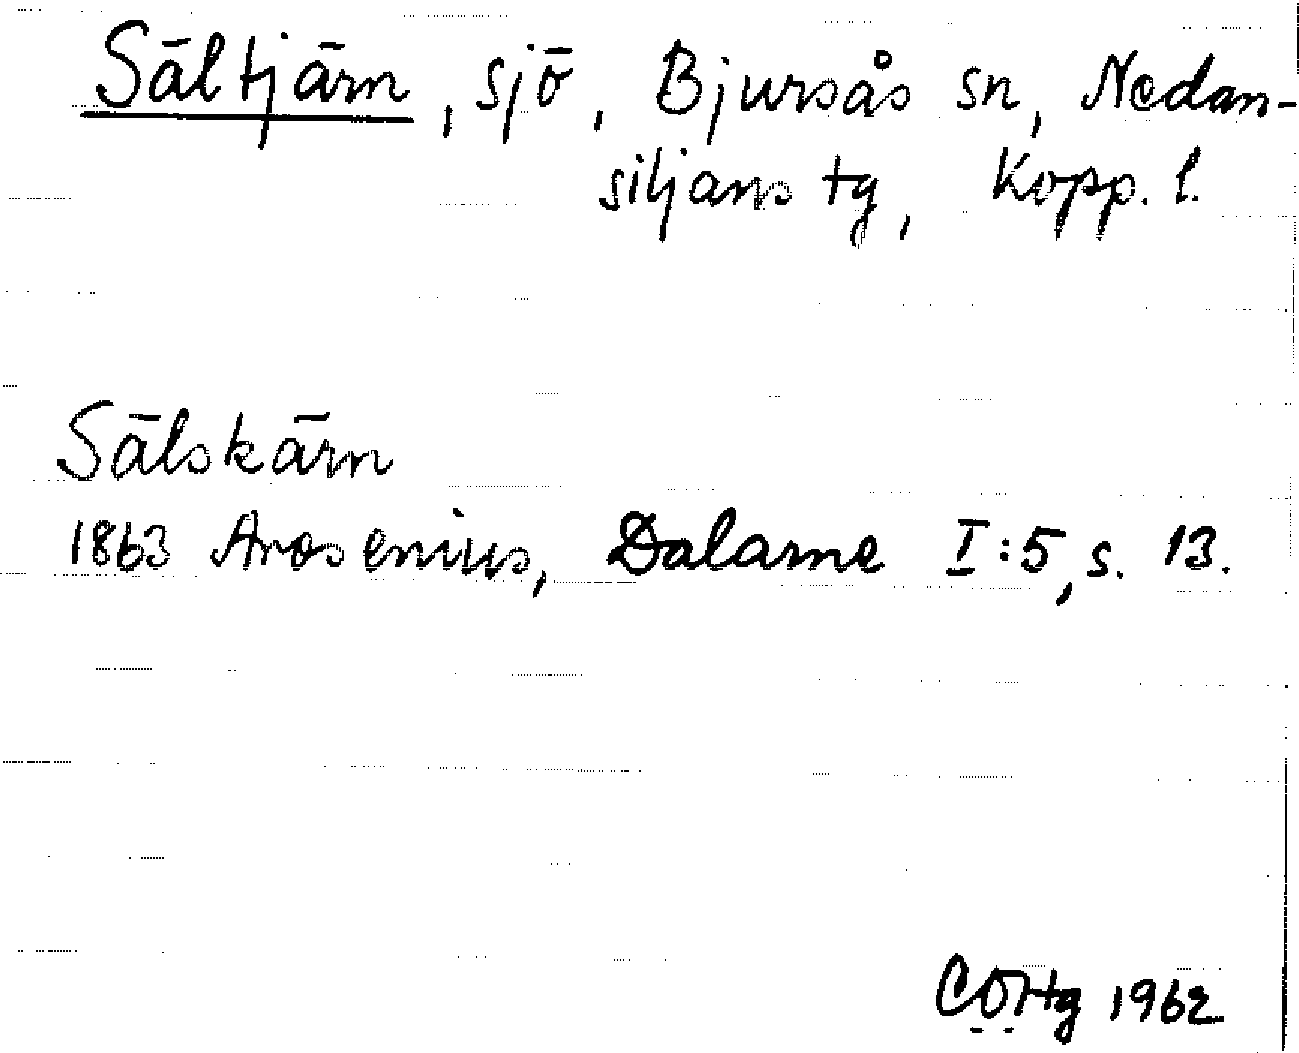 Sältjärn, sjö, Bjursås sn, Nedan-
siljans tg, Kopp. l.
Sälskärn
1863 Arosenius, Dalarne I:5, s. 13.
1962